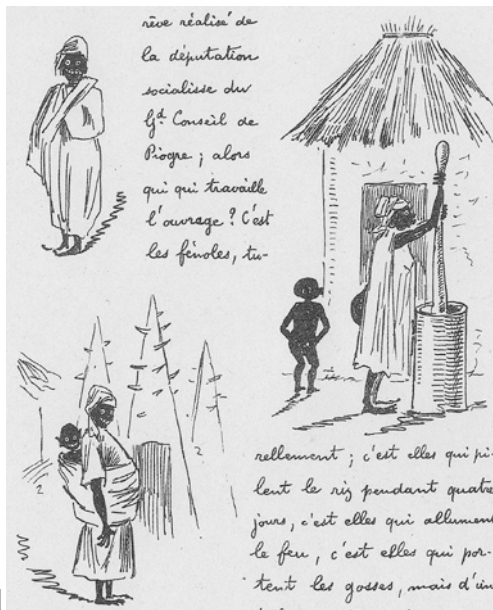 rêve réalisé de
la députation
socialisse du
Gd. Conseil de
Piogre ; alors
qui qui travaille
l'ouvrage ? C'est
les fénoles, tu-
rellement ; c'est elles qui pi-
lent le riz pendant quatre
jours, c'est elles qui allument
le feu, c'est elles qui por-
tent les gosses, mais d'un